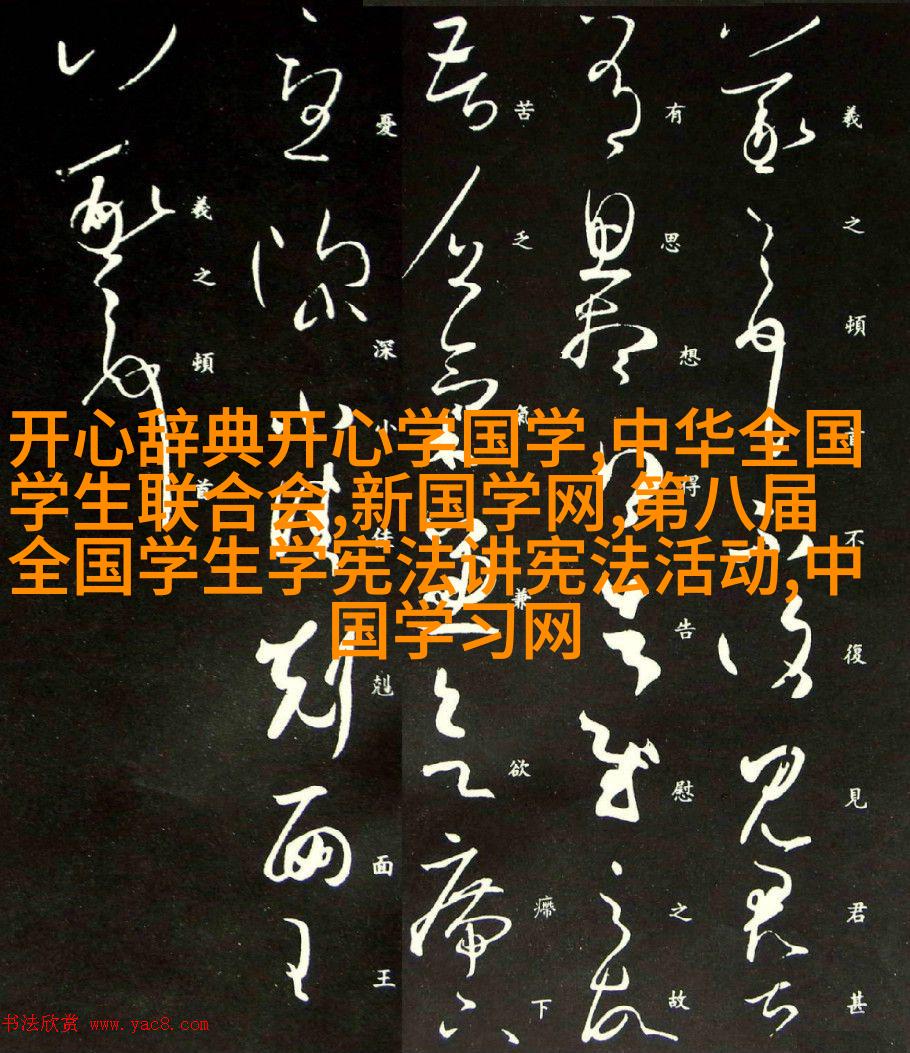 开心辞典开心学国学,中华全国
学生联合会,新国学网,第八届
全国学生学宪法讲宪法活动,中
国学习网
羲之頓首不復見君甚
有思想得告慰之故
苦乏氣兼欲㿃下
憂深小佳剋面王
羲之頓首
书法欣赏 www.yac8.com